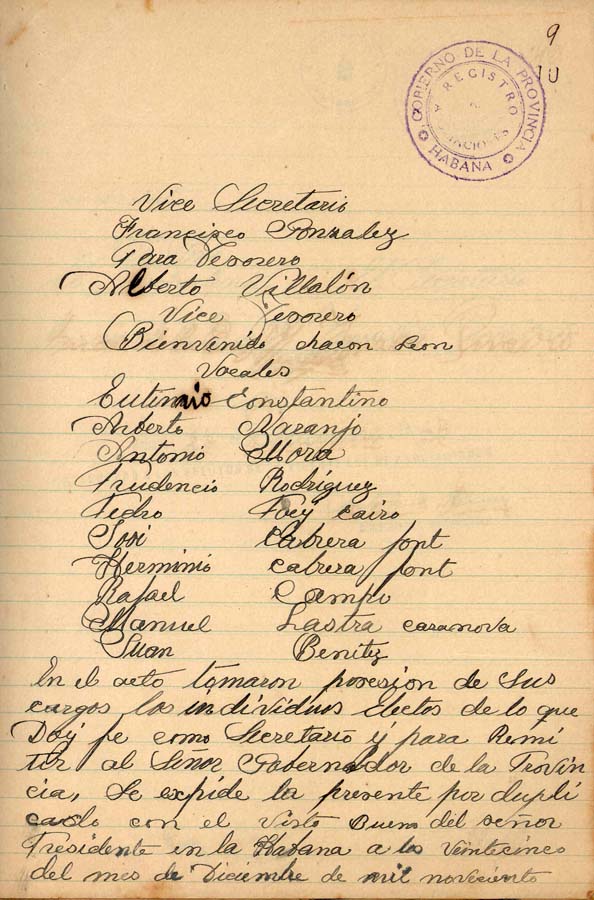 9
10
GOBIERNO DE LA PROVINCIA
REGISTRO
HABANA
Vice Secretario
Francisco Gonzalez
Para Tesorero
Alberto Villalón
Vice Tesorero
Bienvenido chacon Leon
Vocales
Eutimio Constantino
Alberto Naranjo
Antonio Mora
Prudencio Rodriguez
Pedro Foey cairo
José Cabrera font
Herminio cabrera font
Rafael Campo
Manuel Lastra cazanova
Juan Benitez
En el acto tomaron posesion de sus
cargos los individuos electos de lo que
Doy fe como Secretario y para Remi
tir al Señor Gobernador de la Provin
cia, Se expide la presente por dupli
cado con el Visto Bueno del señor
Presidente en la Habana a los Veinticinco
del mes de Diciembre de mil novecients